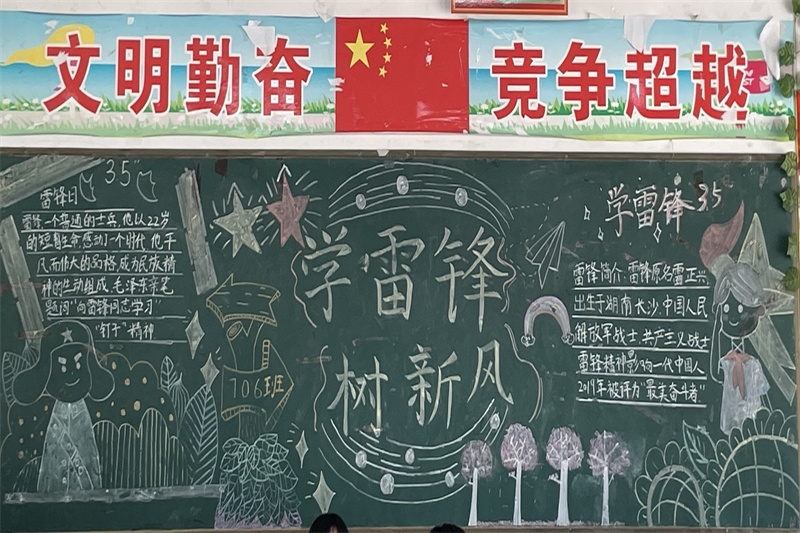 文明勤奋 竞争超越
雷锋日
35"
雷锋一个普通的士兵,他以22岁
的短暂生命感动了一个时代,他平
凡而伟大的品格,成为民族精
神的生动组成,毛泽东亲笔
题词"向雷锋同志学习"
"钉子"精神
106班
学雷锋
树新风
学雷锋35
雷锋简介:雷锋原名雷正兴
出生于湖南长沙,中国人民
解放军战士,共产主义战士
雷锋精神影响一代中国人
2019年被评为"最美奋斗者"